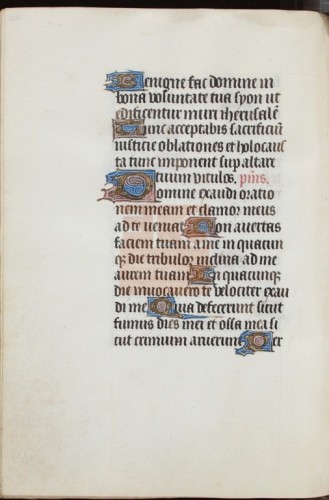 Benigne fac domine in
bona voluntate tua syon ut
edificentur muri iherusalem
Tunc acceptabis sacrificiũ
iusticie oblationes et holocaus
ta tunc imponent sup altare
tuum vitulos. p̃ius.
Domine exaudi oratio
nem meam et clamor meus
ad te veniat Non avertas
faciem tuam a me in quacun
qȝ die tribulor inclina ad me
aurem tuam In quacunqȝ
die invocavero te velociter exau
di me Quia defecerunt sicut
fumus dies mei et ossa mea si
cut cremium aruerunt Per